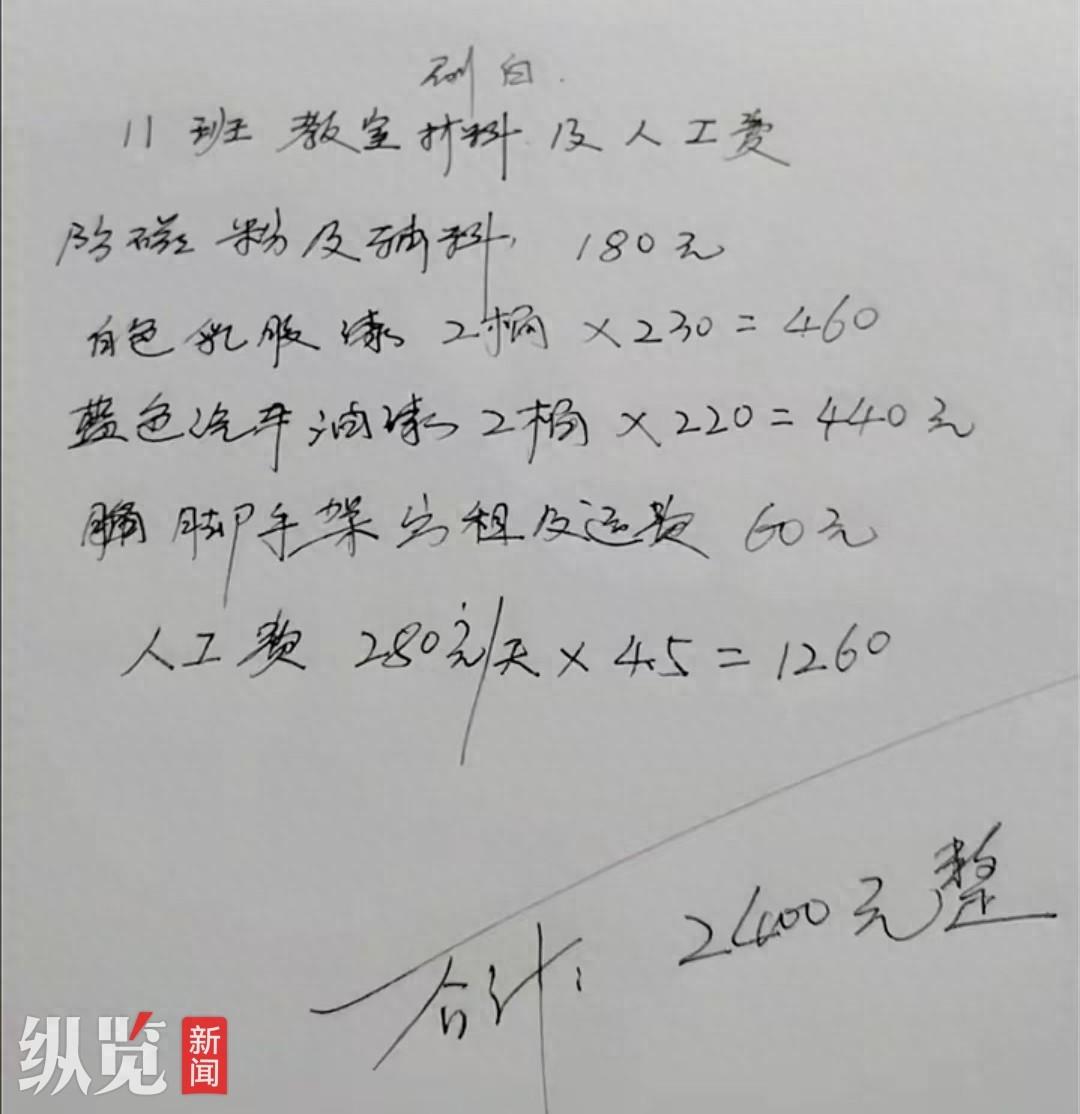 刷白.
11班教室材料及人工费
防磁粉及辅料, 180元
白色乳胶漆2桶×230=460
蓝色汽车油漆2桶×220=440元
脚手架出租及运费 60元
人工费 280元/天×4.5=1260
合计: 2400元整
纵览新闻